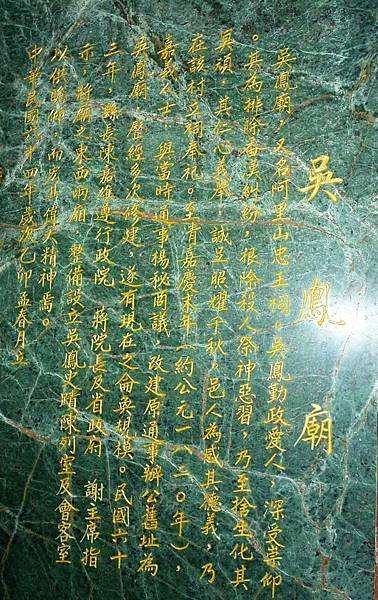 吳鳳廟
吳鳳廟，又名阿里山忠王祠。吳鳳勤政愛人，深受崇仰
。其為排除番漢糾紛，根除殺人祭神惡習，乃至捨生化其
冥頑，其仁心義舉，誠足昭耀千秋。邑人為感其德義，乃
在該村立祠奉祀。至青嘉慶末年（約公元一八二０年），
嘉義人士，與當時通事楊秘商議，改建原通事辦公舊址為
吳鳳廟，歷經多次修建，遂有現在之侖奐規模。民國六十
三年，縣長陳嘉雄遵行政院　蔣院長及省政府　謝主席指
示，將廟之東西兩廂，整備設立吳鳳史蹟陳列室及會客室
以供瞻仰，而宏其偉大精神焉。
中華民國六十四年歲次乙卯孟春月立